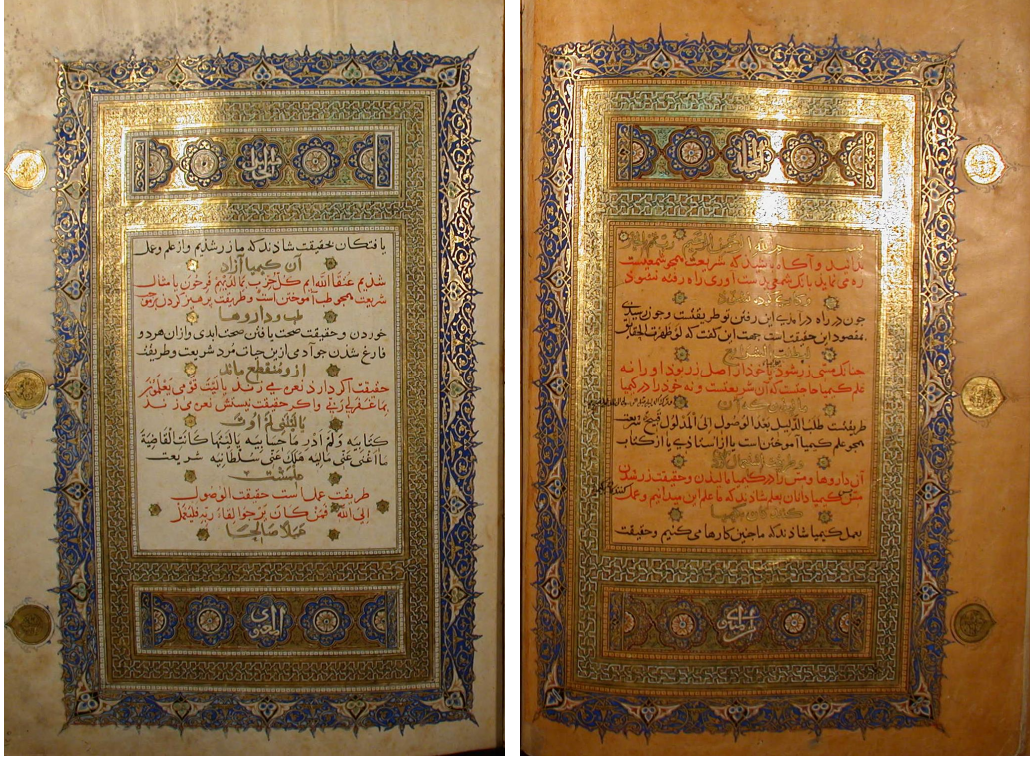 بسم الله الرحمن الرحیم
بدانید و آگاه باشید که شریعت همچو شمعیست
ره می نماید بی آنک شمعی بدست آوری راه رفته نشود
و کاری کرده نشود
چون در راه درآمدی این رفتن تو طریقتست و چون رسیدی
بمقصود این حقیقتست جهت این گفت که لو ظهرت الحقایق
بطلت الشرایع
چنانک مسی زر شود یا خود از اصل زر بود او را نه
علم کیمیا حاجتست که آن شریعتست و نه خود را در کیمیا
مالیدن که آن
طریقتست طلب الدلیل بعد الوصول إلی المدلول قبیح شریعت
همچو علم کیمیا آموختن است یا از استاد یا از کتاب
و طریقت استعمال کردن
آن داروها و مس را در کیمیا مالیدن و حقیقت زر شدن
مس کیمیا دانان بعلم شادند که ما علم این میدانیم و عمل
کنندگان کیمیا
بعمل کیمیا شادند که ما چنین کارها می کنیم و حقیقت
یافتکان بحقیقت شادند که ما زر شدیم و از علم و عمل
آن کیمیا آزاد
شدیم عتقاء الله ایم کل حزب بما لدیهم فرحون یا مثال
شریعت همچو طب آموختن است و طریقت پرهیز کردن بموجب
طب و داروها
خوردن و حقیقت صحت یافتن صحت ابدی و ازان هر دو
فارغ شدن چو آدمی ازین حیات مرد شریعت و طریقت
ازو منقطع ماند
حقیقت اکر دارد نعره می زند یا لیت قومی یعلمون
بما غفر لی ربی و اکر حقیقت نیستش نعره می زند
یا لیتنی لم اوت
کتابیه و لم ادر ما حسابیه یا لیتها کانت القاضیة
ما اغنی عنی مالیه هلک عنی سلطانیه شریعت
علمست
طریقت عمل است حقیقت الوصول
إلی الله فمن کان یرجوا لقاء ربه فلیعمل
عملا صالحا
المعنوی